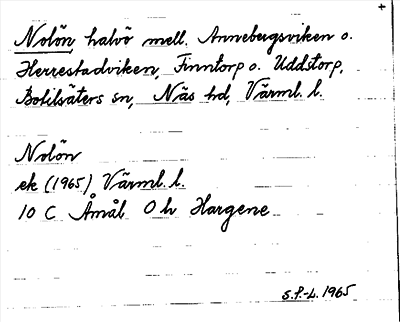 +
Nolön, halvö mell. Annebergsviken o.
Herrestadviken, Finntorp o. Uddstorp,
Botilsäters sn, Näs hd, Värml. l.
Nolön
ek (1965) Värml. l.
10 C Åmål 0 h Hargene
S.P.-L. 1965